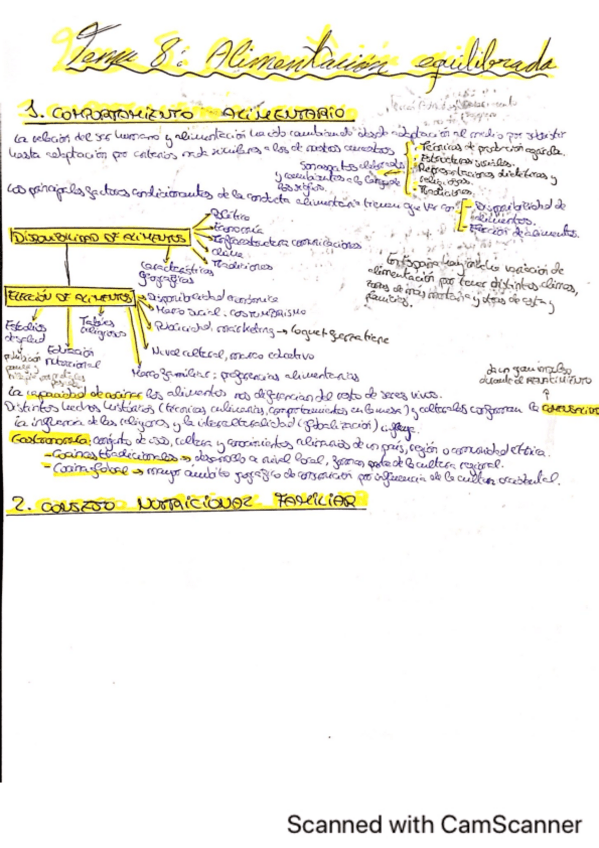 Tema 8: Alimentación equilibrada
1. COMPORTAMIENTO ALIMENTARIO
La relación del ser humano y alimentación ha ido cambiando desde adaptación al medio por subsistir
hasta adaptación por criterios más similares a los de nuestros ancestros
- Técnicas de producción agrícola.
- Estructuras sociales.
- Representaciones dietéticas y
religiosas.
- Tradiciones.
Son aspectos
y cambiantes a lo largo de
los siglos.
Los principales factores condicionantes de la conducta alimentaria tienen que ver con
- Disponibilidad de
alimentos.
- Elección de alimentos.
DISPONIBILIDAD DE ALIMENTOS
Política
Economía
Infraestructura comunicaciones
Clima
Tradiciones
Características
geográficas
En España hay mucha variación de
alimentación por tener distintos climas,
zonas de más montaña y otras de costa y
ELECCIÓN DE ALIMENTOS
Disponibilidad económica
Marco social: COSTUMBRISMO
Publicidad, marketing → lo que + gusta tiene
Nivel cultural, marco educativo
Marco familiar: preferencias alimentarias
Estudios
de salud
Educación
nutricional
Tabúes
religiosos
da un gran impulso
durante el RENACIMIENTO
La capacidad de cocinar los alimentos nos diferencian del resto de seres vivos.
Distintos hechos históricos (técnicas culinarias, comportamientos en la mesa) y culturales conforman la
La influencia de las religiones y la interculturalidad (globalización) influye.
Gastronomía: conjunto de usos, cultura y conocimientos culinarios de un país, región o comunidad étnica.
- Cocinas tradicionales → desarrollo a nivel local, forman parte de la cultura regional.
- Cocina global → mayor ámbito geográfico de consumición por influencia de la cultura occidental.
2. CONSEJO NUTRICIONAL FAMILIAR
Scanned with CamScanner